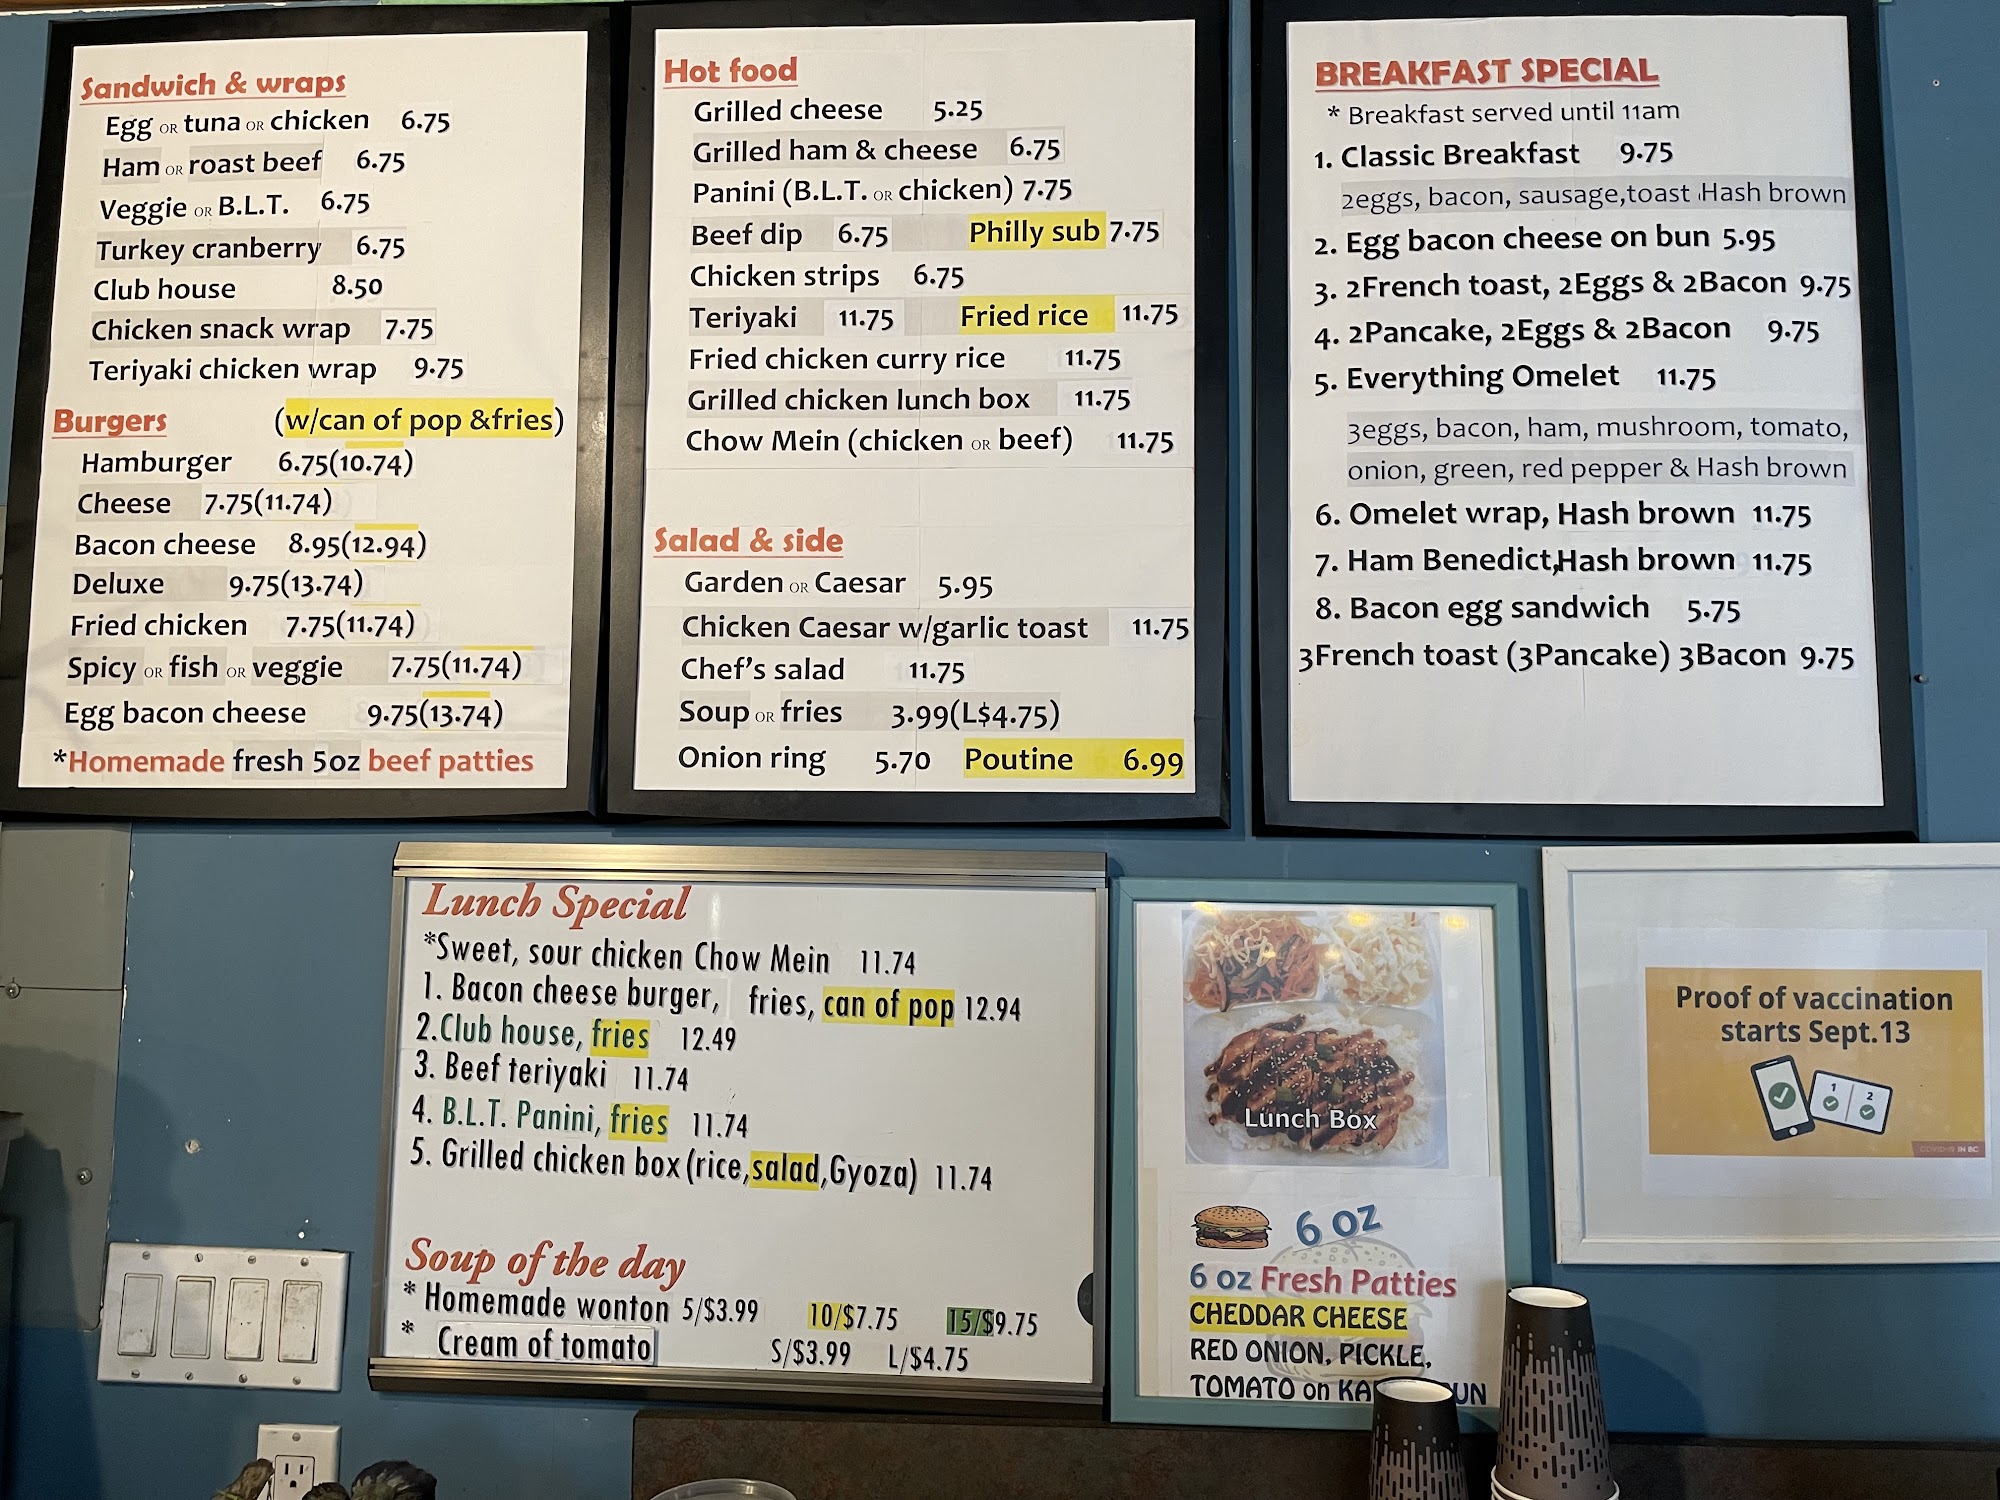 Sandwich & wraps
Egg OR tuna OR chicken 6.75
Ham OR roast beef 6.75
Veggie OR B.L.T. 6.75
Turkey cranberry 6.75
Club house 8.50
Chicken snack wrap 7.75
Teriyaki chicken wrap 9.75
Burgers (w/can of pop &fries)
Hamburger 6.75(10.74)
Cheese 7.75(11.74)
Bacon cheese 8.95(12.94)
Deluxe 9.75(13.74)
Fried chicken 7.75(11.74)
Spicy OR fish OR veggie 7.75(11.74)
Egg bacon cheese 9.75(13.74)
*Homemade fresh 5oz beef patties
Hot food
Grilled cheese 5.25
Grilled ham & cheese 6.75
Panini (B.L.T. OR chicken) 7.75
Beef dip 6.75 Philly sub 7.75
Chicken strips 6.75
Teriyaki 11.75 Fried rice 11.75
Fried chicken curry rice 11.75
Grilled chicken lunch box 11.75
Chow Mein (chicken OR beef) 11.75
Salad & side
Garden OR Caesar 5.95
Chicken Caesar w/garlic toast 11.75
Chef's salad 11.75
Soup OR fries 3.99(L$4.75)
Onion ring 5.70 Poutine 6.99
BREAKFAST SPECIAL
* Breakfast served until 11am
1. Classic Breakfast 9.75
2eggs, bacon, sausage,toast Hash brown
2. Egg bacon cheese on bun 5.95
3. 2French toast, 2Eggs & 2Bacon 9.75
4. 2Pancake, 2Eggs & 2Bacon 9.75
5. Everything Omelet 11.75
3eggs, bacon, ham, mushroom, tomato,
onion, green, red pepper & Hash brown
6. Omelet wrap, Hash brown 11.75
7. Ham Benedict,Hash brown 11.75
8. Bacon egg sandwich 5.75
3French toast (3Pancake) 3Bacon 9.75
Lunch Special
*Sweet, sour chicken Chow Mein 11.74
1. Bacon cheese burger, fries, can of pop 12.94
2.Club house, fries 12.49
3. Beef teriyaki 11.74
4. B.L.T. Panini, fries 11.74
5. Grilled chicken box (rice,salad,Gyoza) 11.74
Soup of the day
* Homemade wonton 5/$3.99 10/$7.75 15/$9.75
* Cream of tomato S/$3.99 L/$4.75
Lunch Box
6 oz
6 oz Fresh Patties
CHEDDAR CHEESE
RED ONION, PICKLE,
TOMATO on
Proof of vaccination
starts Sept.13
1 2
COVID-19 IN BC